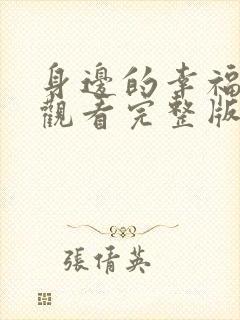 身邊的幸福
觀看完整版
張倩英